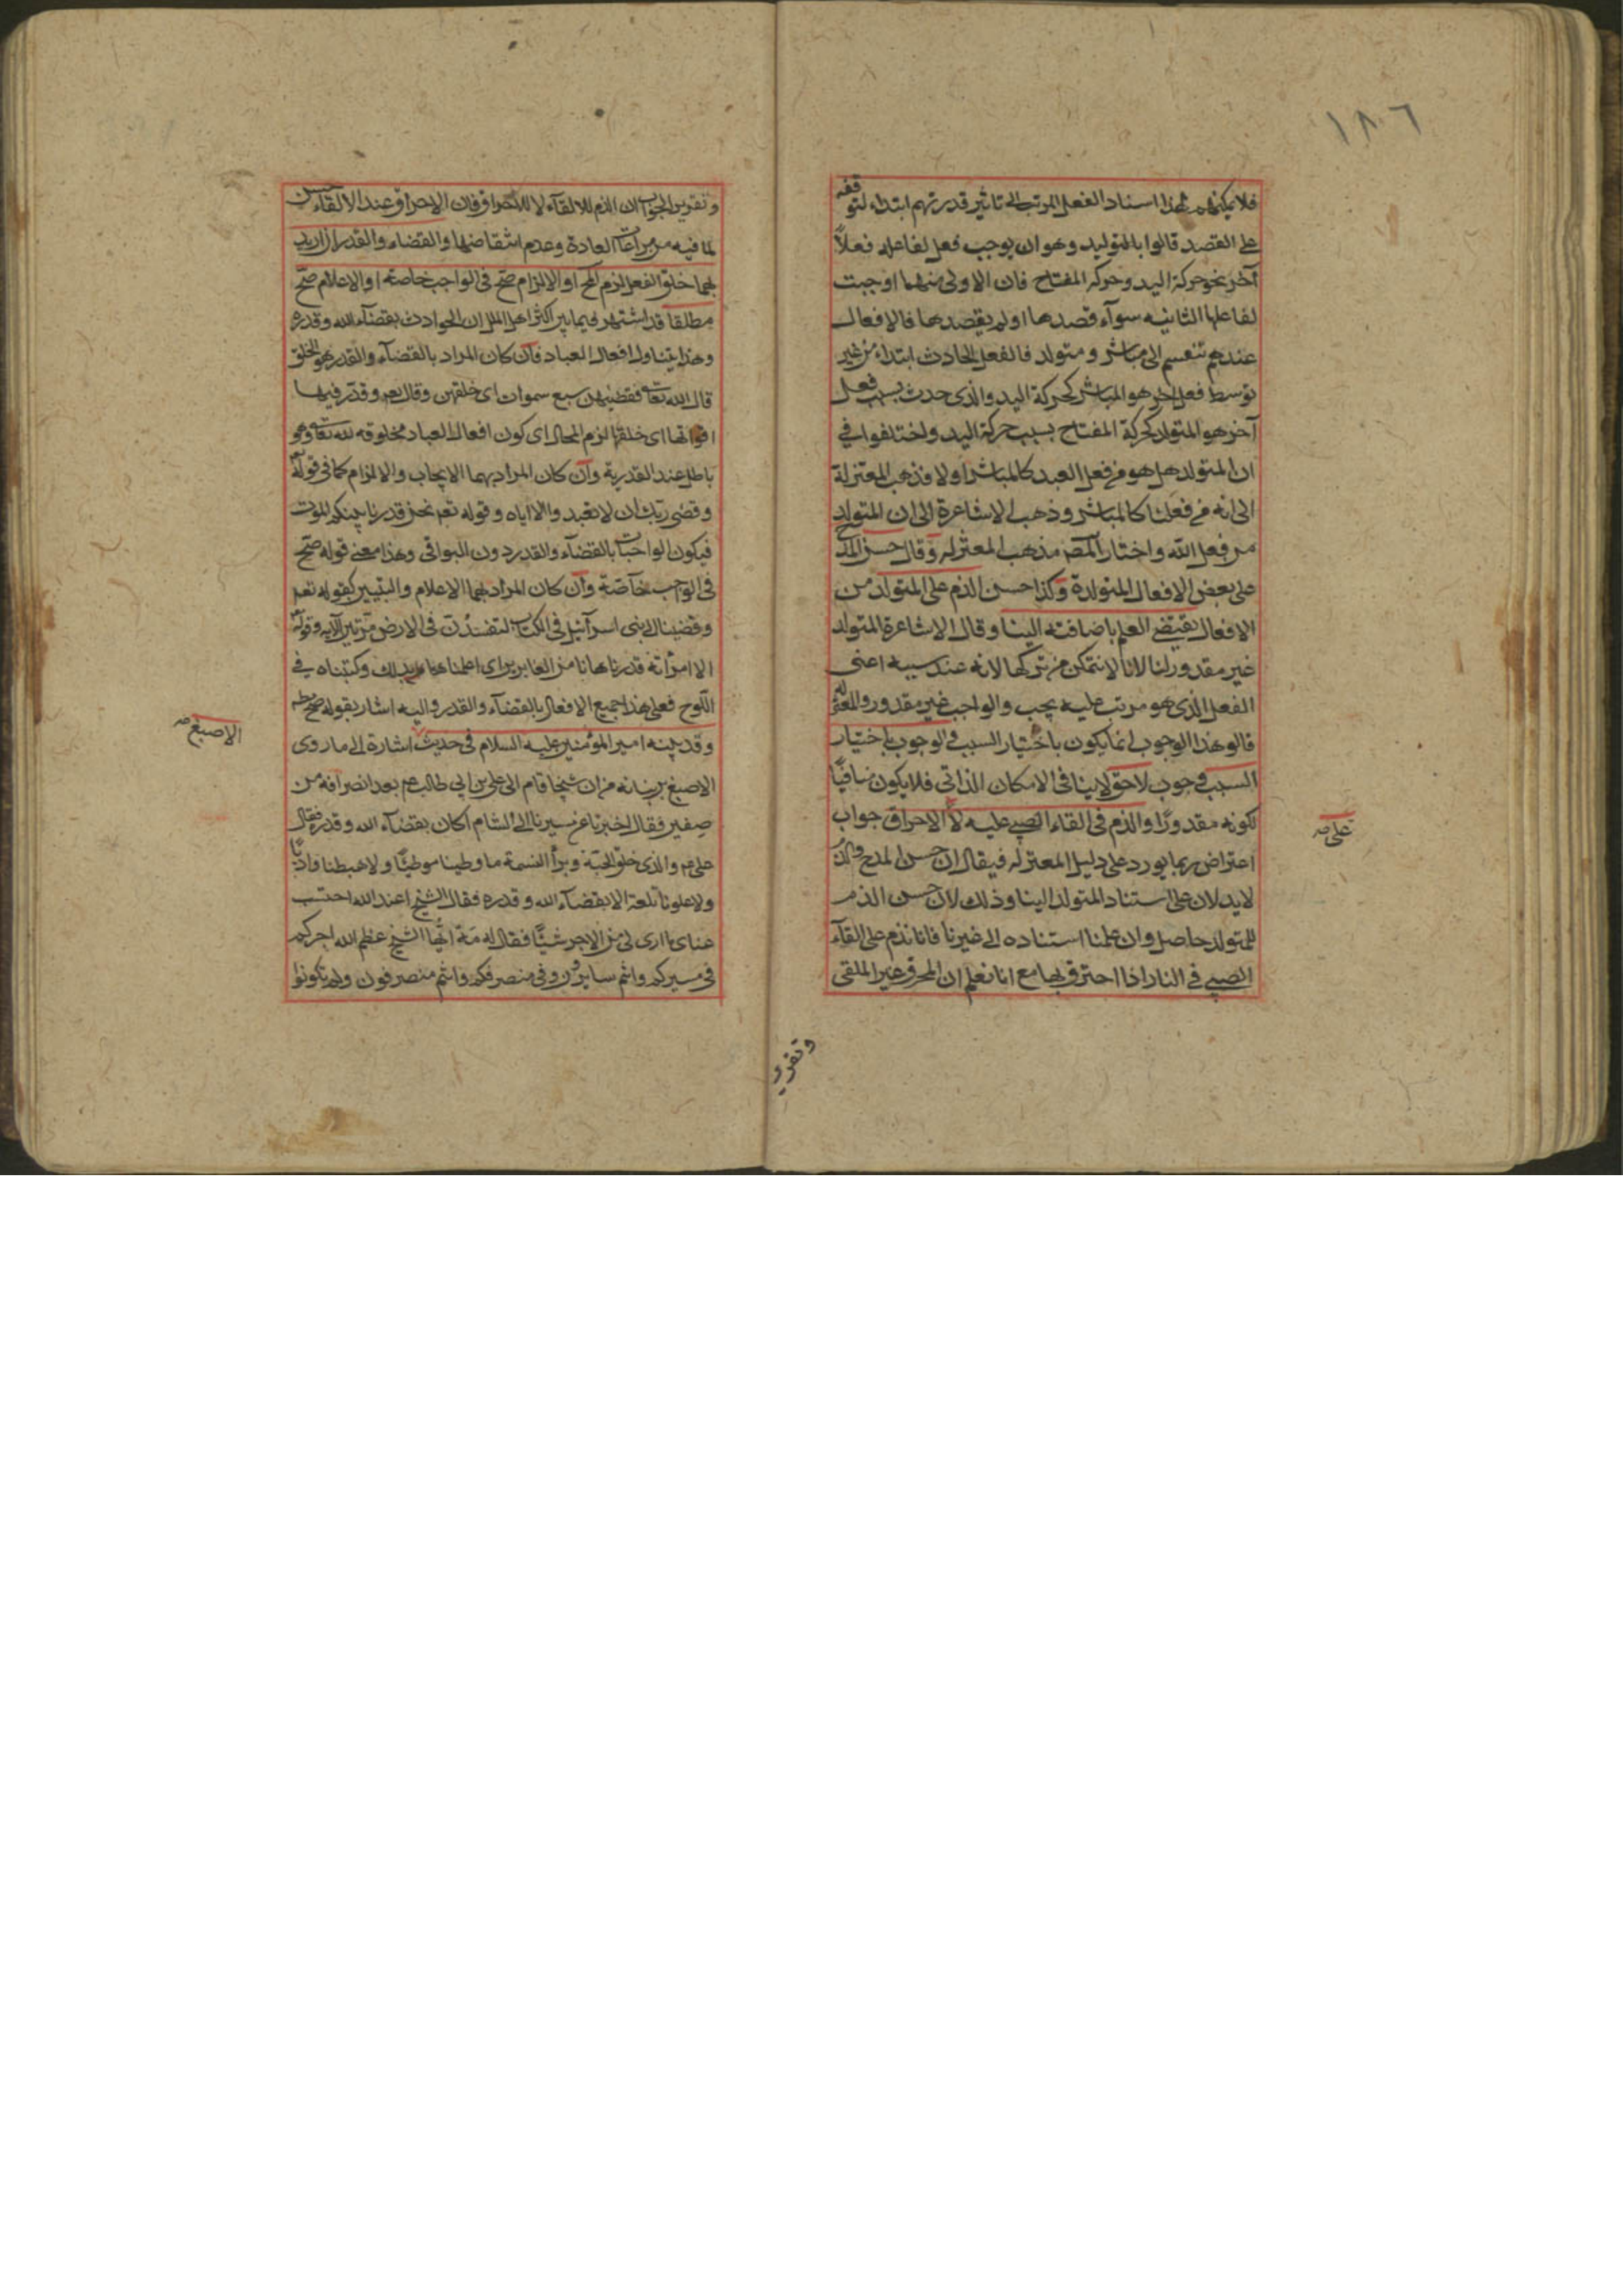 ١٨٦
فلا يمكنهم لهذا اسناد الفعل المرتب الى تاثير قدرتهم ابتداء لتوقفه
على القصد قالوا بالتوليد وهو ان يوجب فعل لفاعله فعلاً
آخر نحو حركة اليد وحركة المفتاح فان الاولى منهما اوجبت
لفاعلها الثانيه سوآء قصدها او لم يقصدها فالافعال
عندهم تنقسم الى مباشر ومتولد فالفعل الحادث ابتداء من غير
توسط فعل آخر هو المباشر كحركة اليد والذى حدث بسبب فعل
آخر هو المتولد كحركة المفتاح بسبب حركة اليد واختلفوا في
ان المتولد هل هو من فعل العبد كالمباشر اولا فذهب المعتزلة
الى انه من فعلنا كالمباشر وذهب الاشاعرة الى ان المتولد
من فعل الله واختار المص مذهب المعتزله وقال حسن المدح
على بعض الافعال المتولدة وكذا حسن الذم على المتولد من
الافعال يقتضى العلم باضافته الينا وقال الاشاعرة المتولد
غير مقدور لنا لانا لا نتمكن من تركها لانه عند سببه اعنى
الفعل الذى هو مرتب عليه يجب والواجب غير مقدور والمعتزله
قالوا هذا الوجوب انما يكون باختيار السبب والوجوب باختيار
السبب وجوب لاحق لا ينافى الامكان الذاتى فلا يكون منافيًا
لكونه مقدورًا والذم فى القاء الصبي عليه لا الاحراق جواب
على صح
اعتراض ربما يورد على دليل المعتزله فيقال ان حسن المدح والذم
لا يدلان على استناد المتولد الينا وذلك لان حسن الذم
للمتولد حاصل وان علمنا استناده الى غيرنا فانا نذم على القآء
الصبي في النار اذا احترق بها مع انا نعلم ان المحرق غير الملقى
وتقرير
وتقرير الجواب ان الذم للالقآء لا للاحراق فان الاحراق عند الالقاء حسن
لما فيه من مراعات العادة وعدم انتقاضها والقضاء والقدر ان اريد
بهما خلق الفعل لزم المح او الالزام صح فى الواجب خاصة او الاعلام صح
مطلقا قد اشتهر فيما بين اكثر اهل الملل ان الحوادث بقضآء الله وقدره
وهذا يتناول افعال العباد فان كان المراد بالقضآء والقدر هو الخلق
قال الله تعالى فقضيهن سبع سموات اى خلقهن وقال تعم وقدر فيها
اقواتها اى خلقها لزم المحال اى كون افعال العباد مخلوقه لله تعالى وهو
باطل عند القدرية وان كان المراد بهما الايجاب والالزام كما فى قوله
وقضى ربك ان لا تعبد والا اياه وقوله تعم نحن قدرنا بينكم الموت
فيكون الواجبات بالقضآء والقدر دون البواقى وهذا معنى قوله صح
فى الواجب خآصة وان كان المراد بهما الاعلام والتبيين كقوله تعم
وقضينا الى بنى اسرآئيل فى الكتاب لتفسدن فى الارض مرتين الآيه وقوله
الا امرأته قدرناها انا من الغابرين اى اعلمنا بذلك وكتبناه في
اللوح فعلى هذا جميع الافعال بالقضآء والقدر واليه اشار بقوله صح مطلقا
وقد بينه امير المؤمنين عليه السلام فى حديث اشارة الى ما روى
الاصبغ صح
الاصبغ بن نباته من ان شيخا قام الى على بن ابي طالب عم بعد انصرافه من
صفين فقال اخبرنا عن مسيرنا الى الشام اكان بقضآء الله وقدره فقال
على عم والذى خلق الحبة وبرأ النسمة ما وطينا موطيًا ولا هبطنا واديًا
ولا علونا تلعة الا بقضآء الله وقدره فقال الشيخ اعند الله احتسب
عناى ما ارى لى من الاجر شيئًا فقال له مه ايها الشيخ عظم الله اجركم
فى مسيركم وانتم سايرون وفى منصرفكم وانتم منصرفون ولم تكونوا